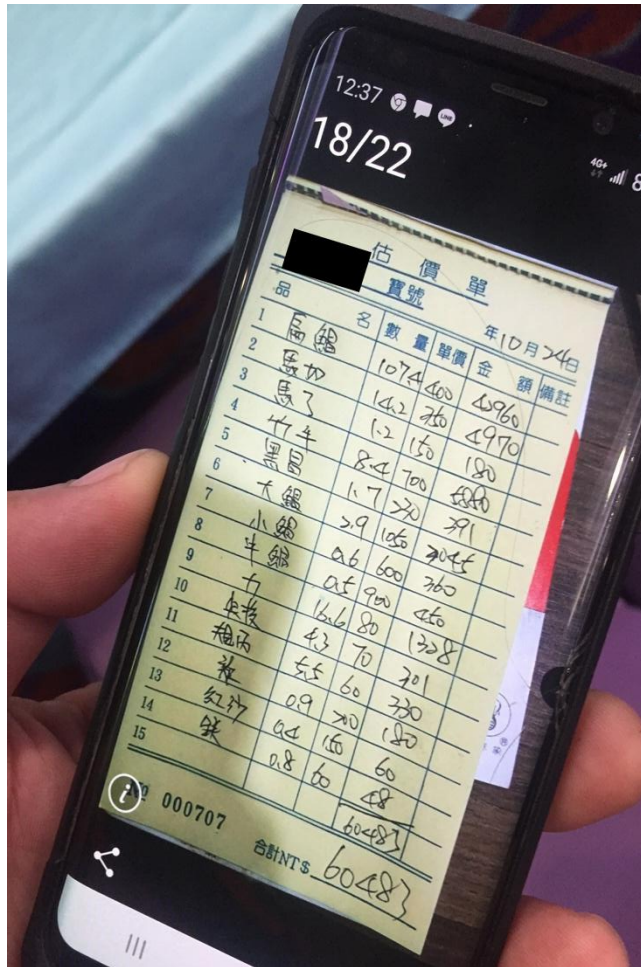 12:37
18/22
4G+ 8
估價單
寶號 年10月24日
品名 數量 單價 金額 備註
1 扁鯧 107.4 400 42960
2 馬加 14.2 350 4970
3 馬了 1.2 150 180
4 午 8.4 700 5880
5 黑昌 1.7 230 391
6 大鯧 2.9 1050 3045
7 小鯧 0.6 600 360
8 中鯧 0.5 900 450
9 力 16.6 80 1328
10 4.3 70 301
11 5.5 60 330
12 0.9 200 180
13 紅沙 0.4 150 60
14 0.8 60 48
15 60483
№ 000707
合計NT$ 60483